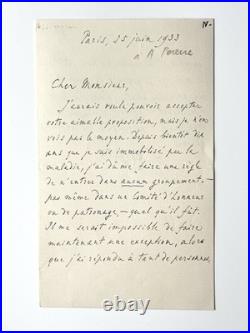 IV-
Paris, 25 juin 1933
à A
Cher Monsieur,
J'aurais voulu pouvoir accepter
votre aimable proposition, mais je n'en
vois pas le moyen. Depuis bientôt dix
ans que je suis immobilisé par la
maladie, j'ai dû me faire une règle
de n'entrer dans aucun groupement –
pas même dans un Comité d'honneur
ou de patronage – quel qu'il fût.
Il me serait impossible de faire
maintenant une exception, alors
que j'ai répondu à tant de personnes